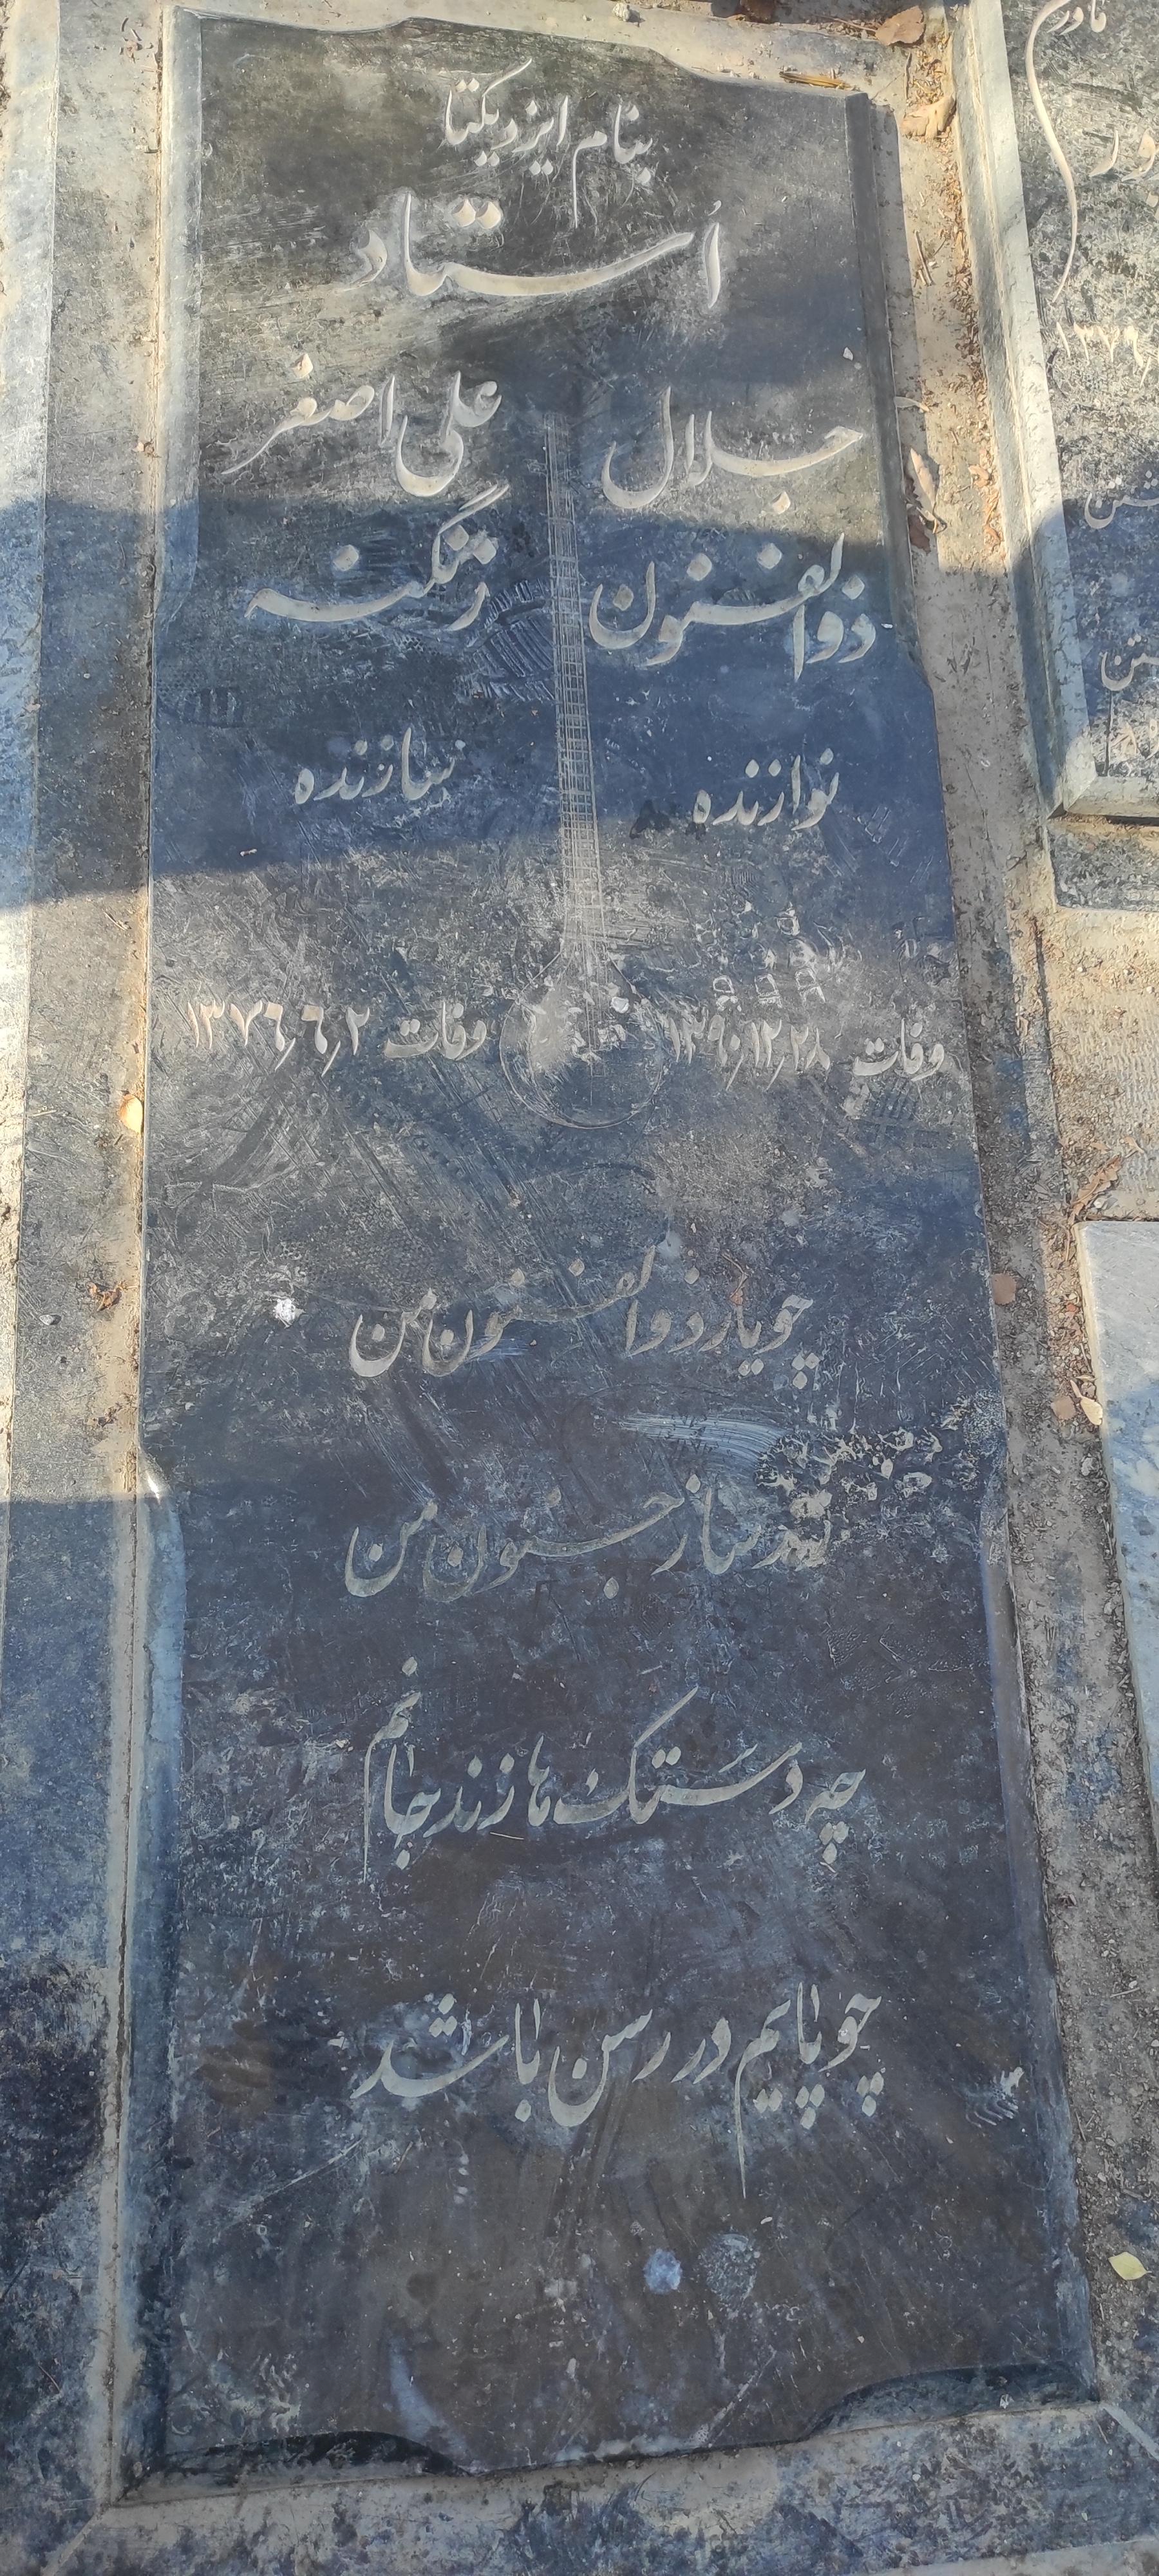 بنام ایزد یکتا
اُستاد
جلال علی اصغر
ذوالفنون زنگنه
نوازنده سازنده
وفات ۱۳۹۰٫۱۲٫۲۸ وفات ۱۳۷۶٫۶٫۲
چو یار ذوالفنون من
ساز جنون من
چه دستک ها زند جانم
چو پایم در رسن باشد
مادرم
۱۳۷۹